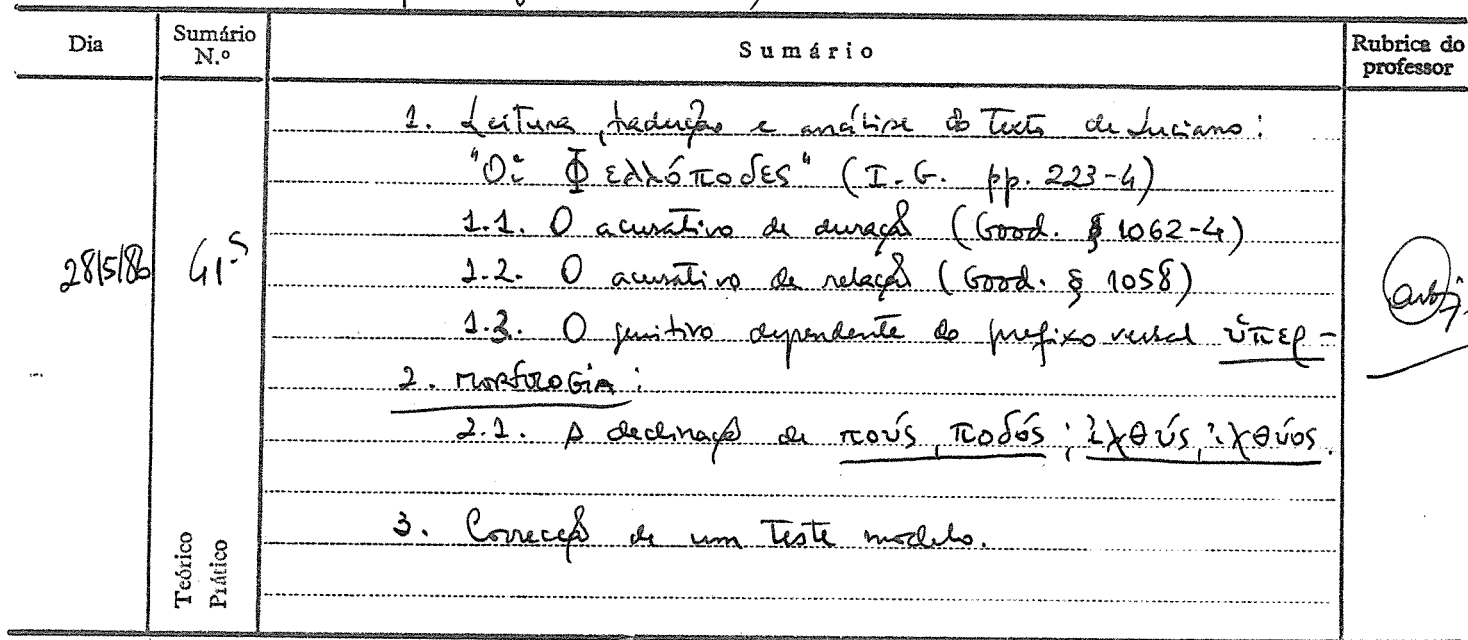 Dia
Sumário
N.º
Sumário
Rubrica do
professor
1. Leitura, tradução e análise do texto de Luciano:
"Οἱ Φελλόποδες" (I.G. pp. 223-4)
1.1. O acusativo de duração (Good. § 1062-4)
28/5/86
1.2. O acusativo de relação (Good. § 1058)
1.3. O genitivo dependente do prefixo verbal ὑπερ-
2. MORFOLOGIA:
2.1. A declinação de πούς, ποδός; ἰχθύς, ἰχθύος.
3. Correcção de um teste modelo.
Teórico
Prático